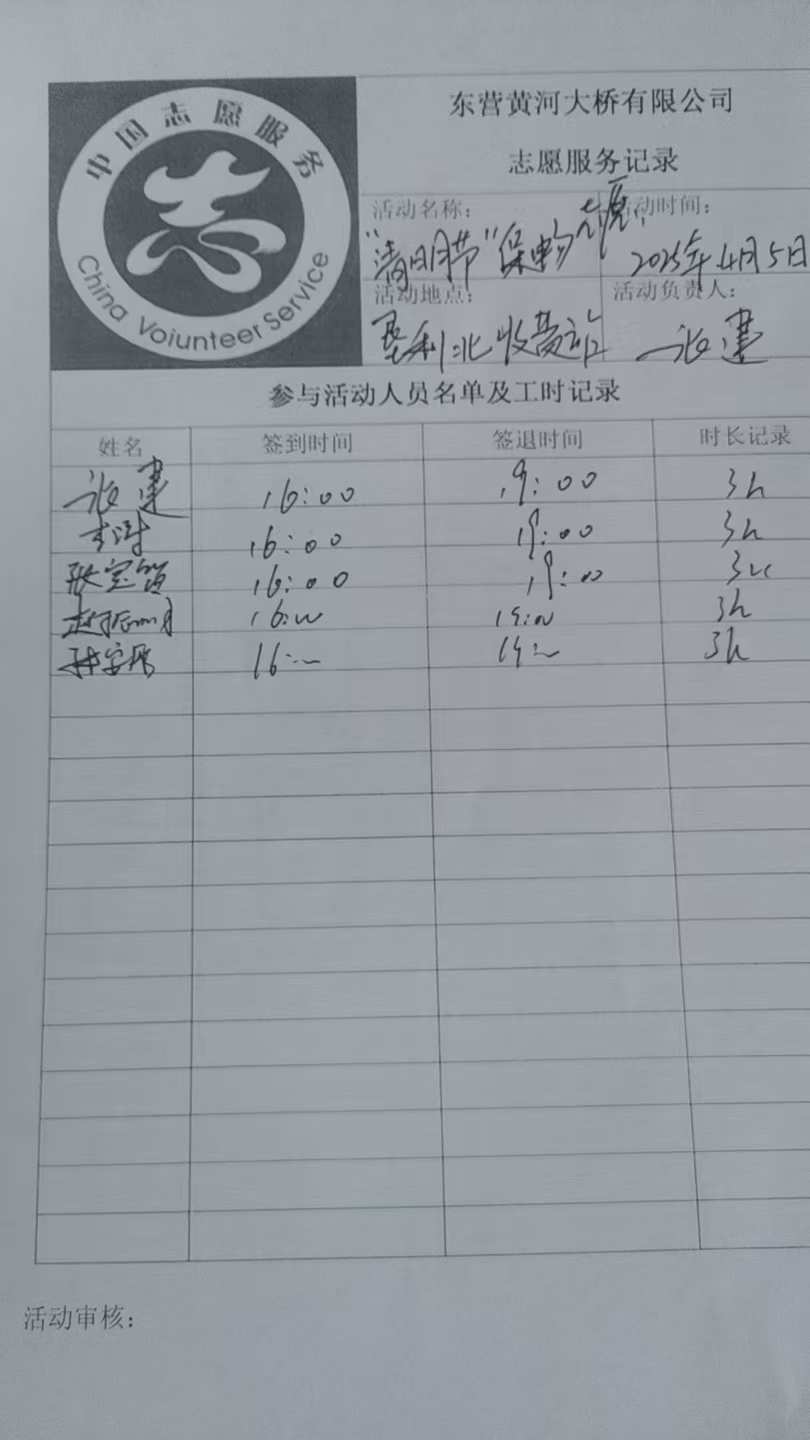 中国志愿服务
China Voiunteer Service
东营黄河大桥有限公司
志愿服务记录
活动名称：
"清明节"保畅志愿
活动时间：
2025年4月5日
活动地点：
垦利北收费站
活动负责人：
张建
参与活动人员名单及工时记录
姓名 签到时间 签退时间 时长记录
张建 16:00 19:00 3h
16:00 19:00 3h
张宝 16:00 19:00 3h
16: 19: 3h
16: 19: 3h
活动审核：